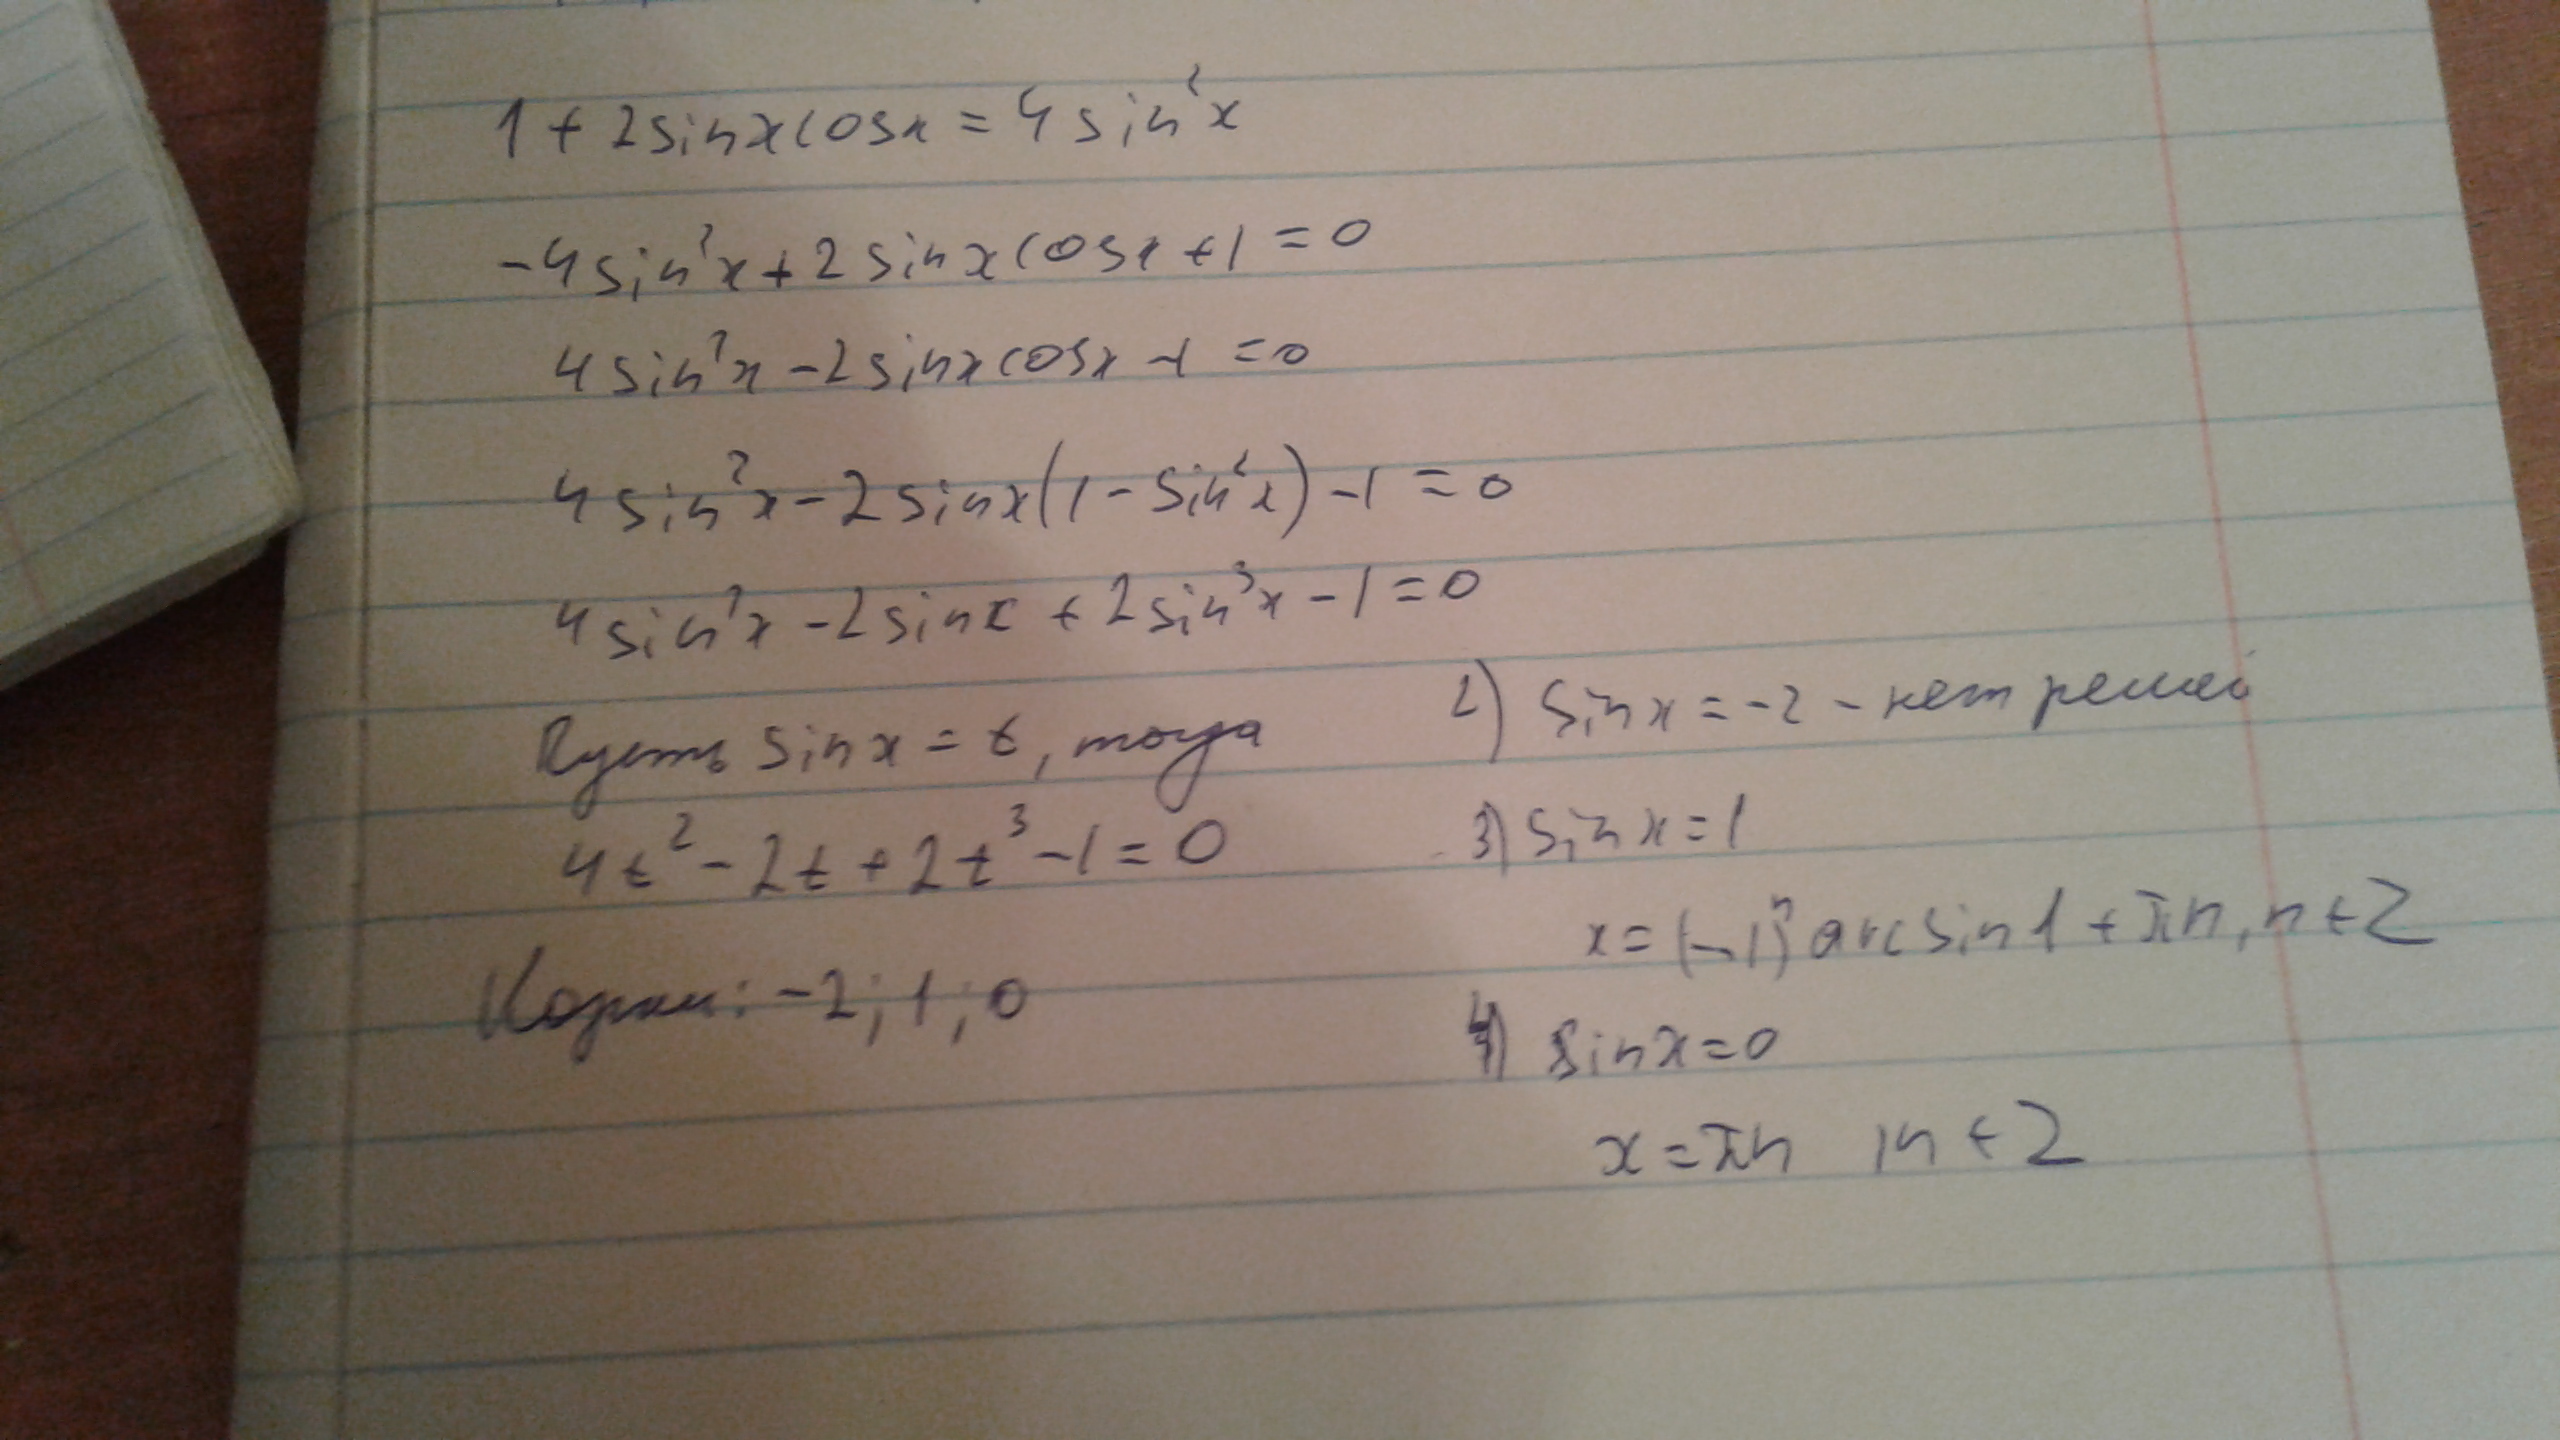 1 + 2sinxcosx = 4sin²x
-4sin²x + 2sinxcosx + 1 = 0
4sin²x - 2sinxcosx - 1 = 0
4sin²x - 2sinx(1 - sin²x) - 1 = 0
4sin²x - 2sinx + 2sin³x - 1 = 0
Пусть sinx = t, тогда
4t² - 2t + 2t³ - 1 = 0
Корни: -2; 1; 0
2) sinx = -2 - нет решей
3) sinx = 1
x = (-1)ⁿ arcsin1 + πn, n ∈ Z
4) sinx = 0
x = πn , n ∈ Z